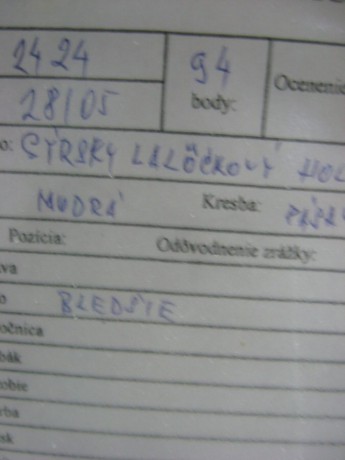 2424 94 Ocenenie
28105 body:
o: SÝRSKY LALÔČKOVÝ HOL
MODRÁ Kresba: PÁSA
Pozícia: Odôvodnenie zrážky:
va
o BLEDŠIE
očnica
bák
obie
rba
sk